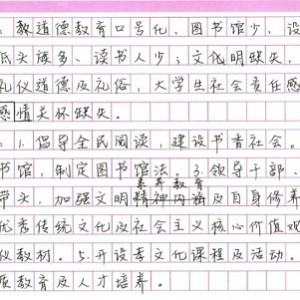 、教道德教育口号化，图书馆少，设
低头族多、读书人少；文化明缺失，
礼仪道德及礼俗，大学生社会责任感
感情关怀缺失。
：1.倡导全民阅读，建设书香社会。
书馆，制定图书馆法。3.领导干部、
带头，加强文明素养教育及自身修养
优秀传统文化及社会主义核心价值观
仪教材。5.开设孝文化课程及活动。
质教育及人才培养。